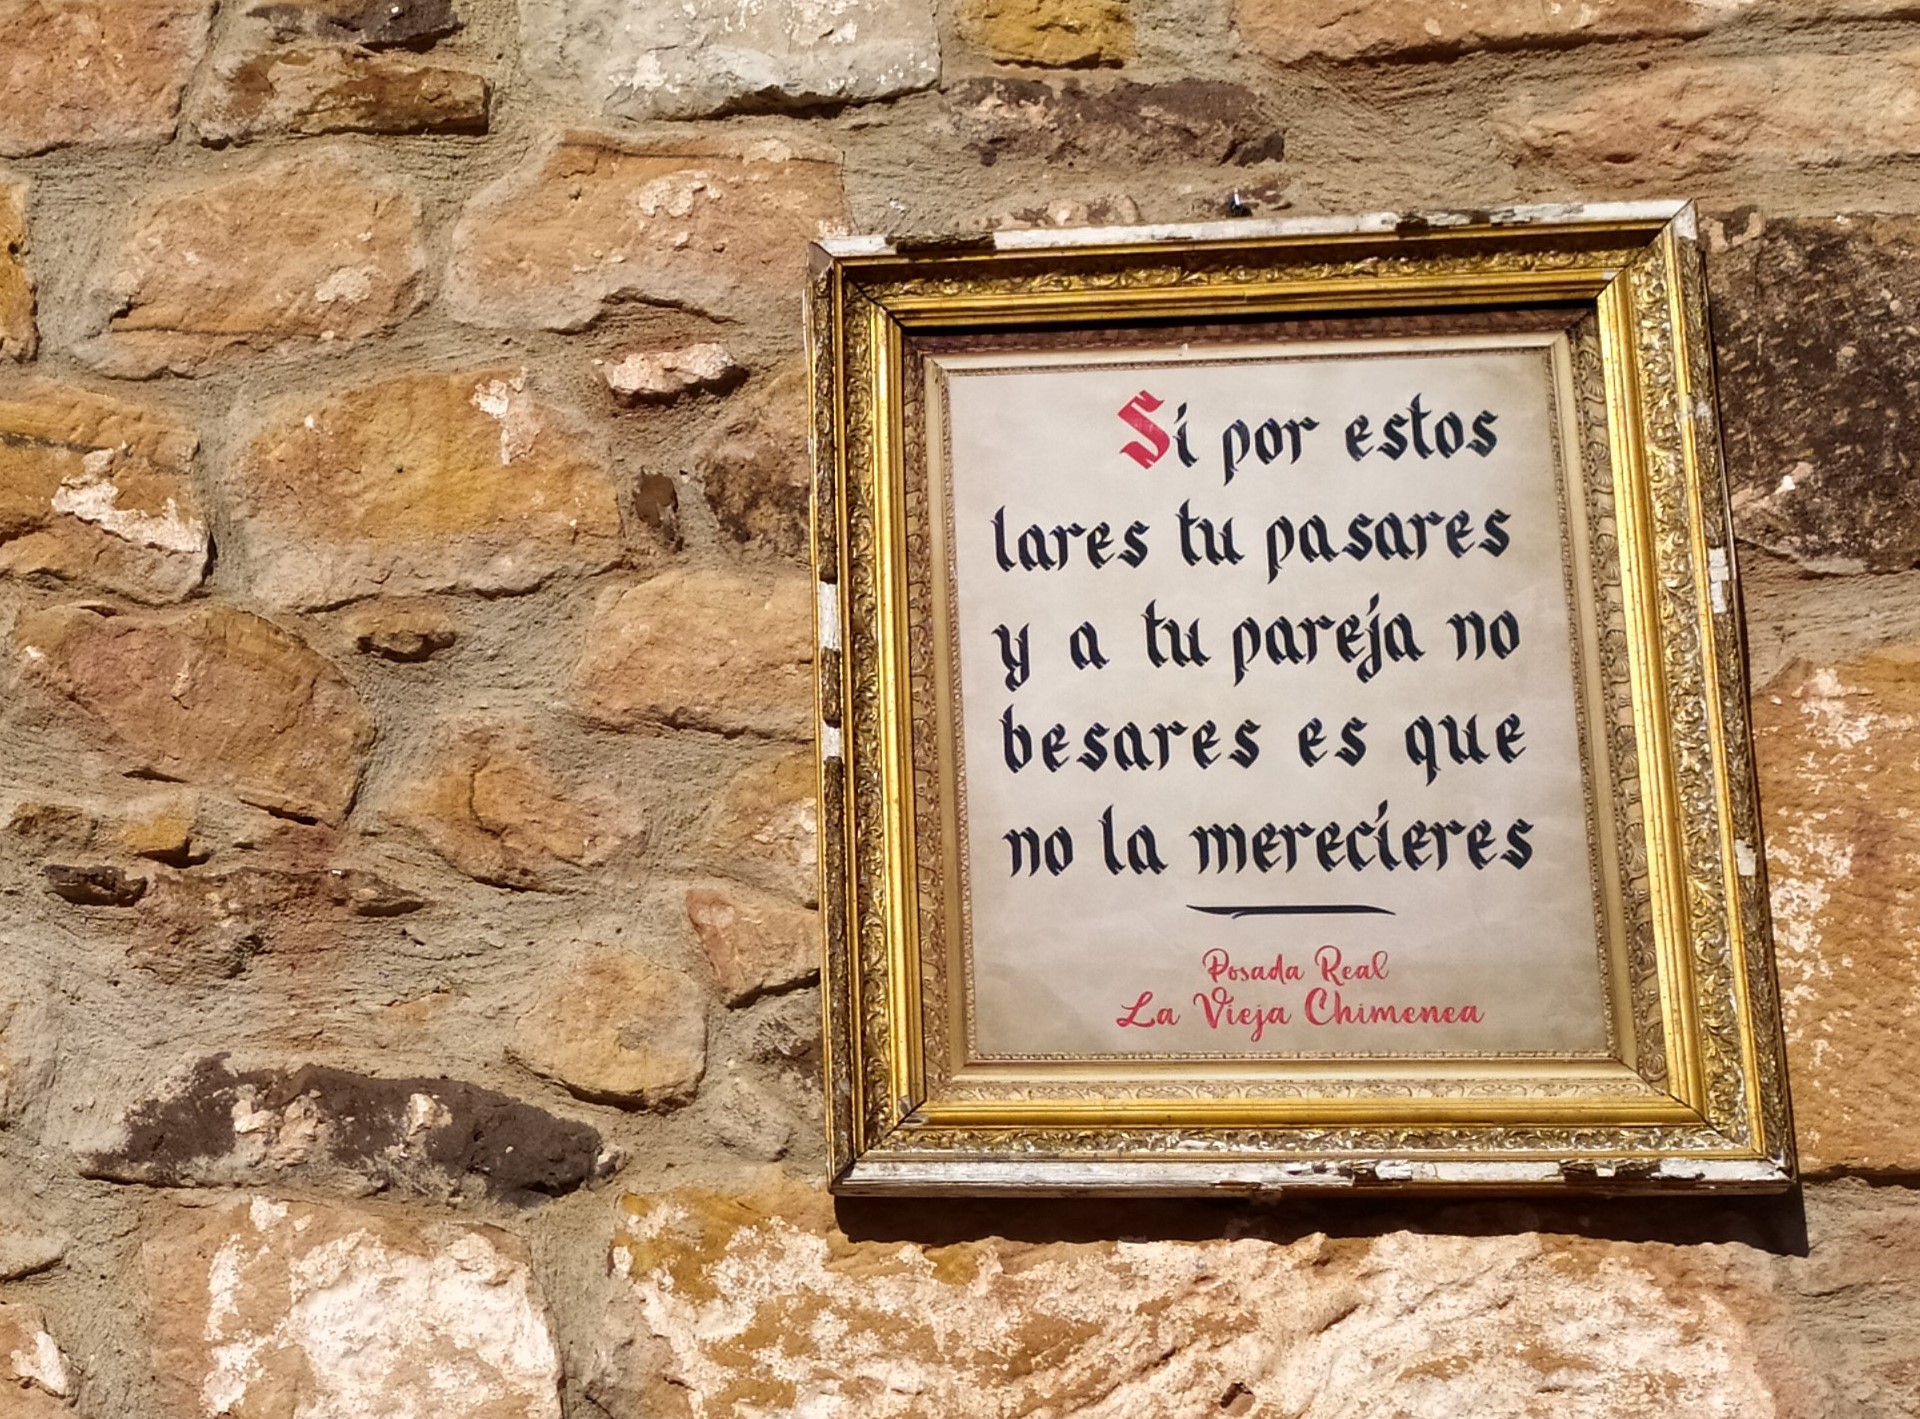 Si por estos
lares tu pasares
y a tu pareja no
besares es que
no la merecieres
Posada Real
La Vieja Chimenea